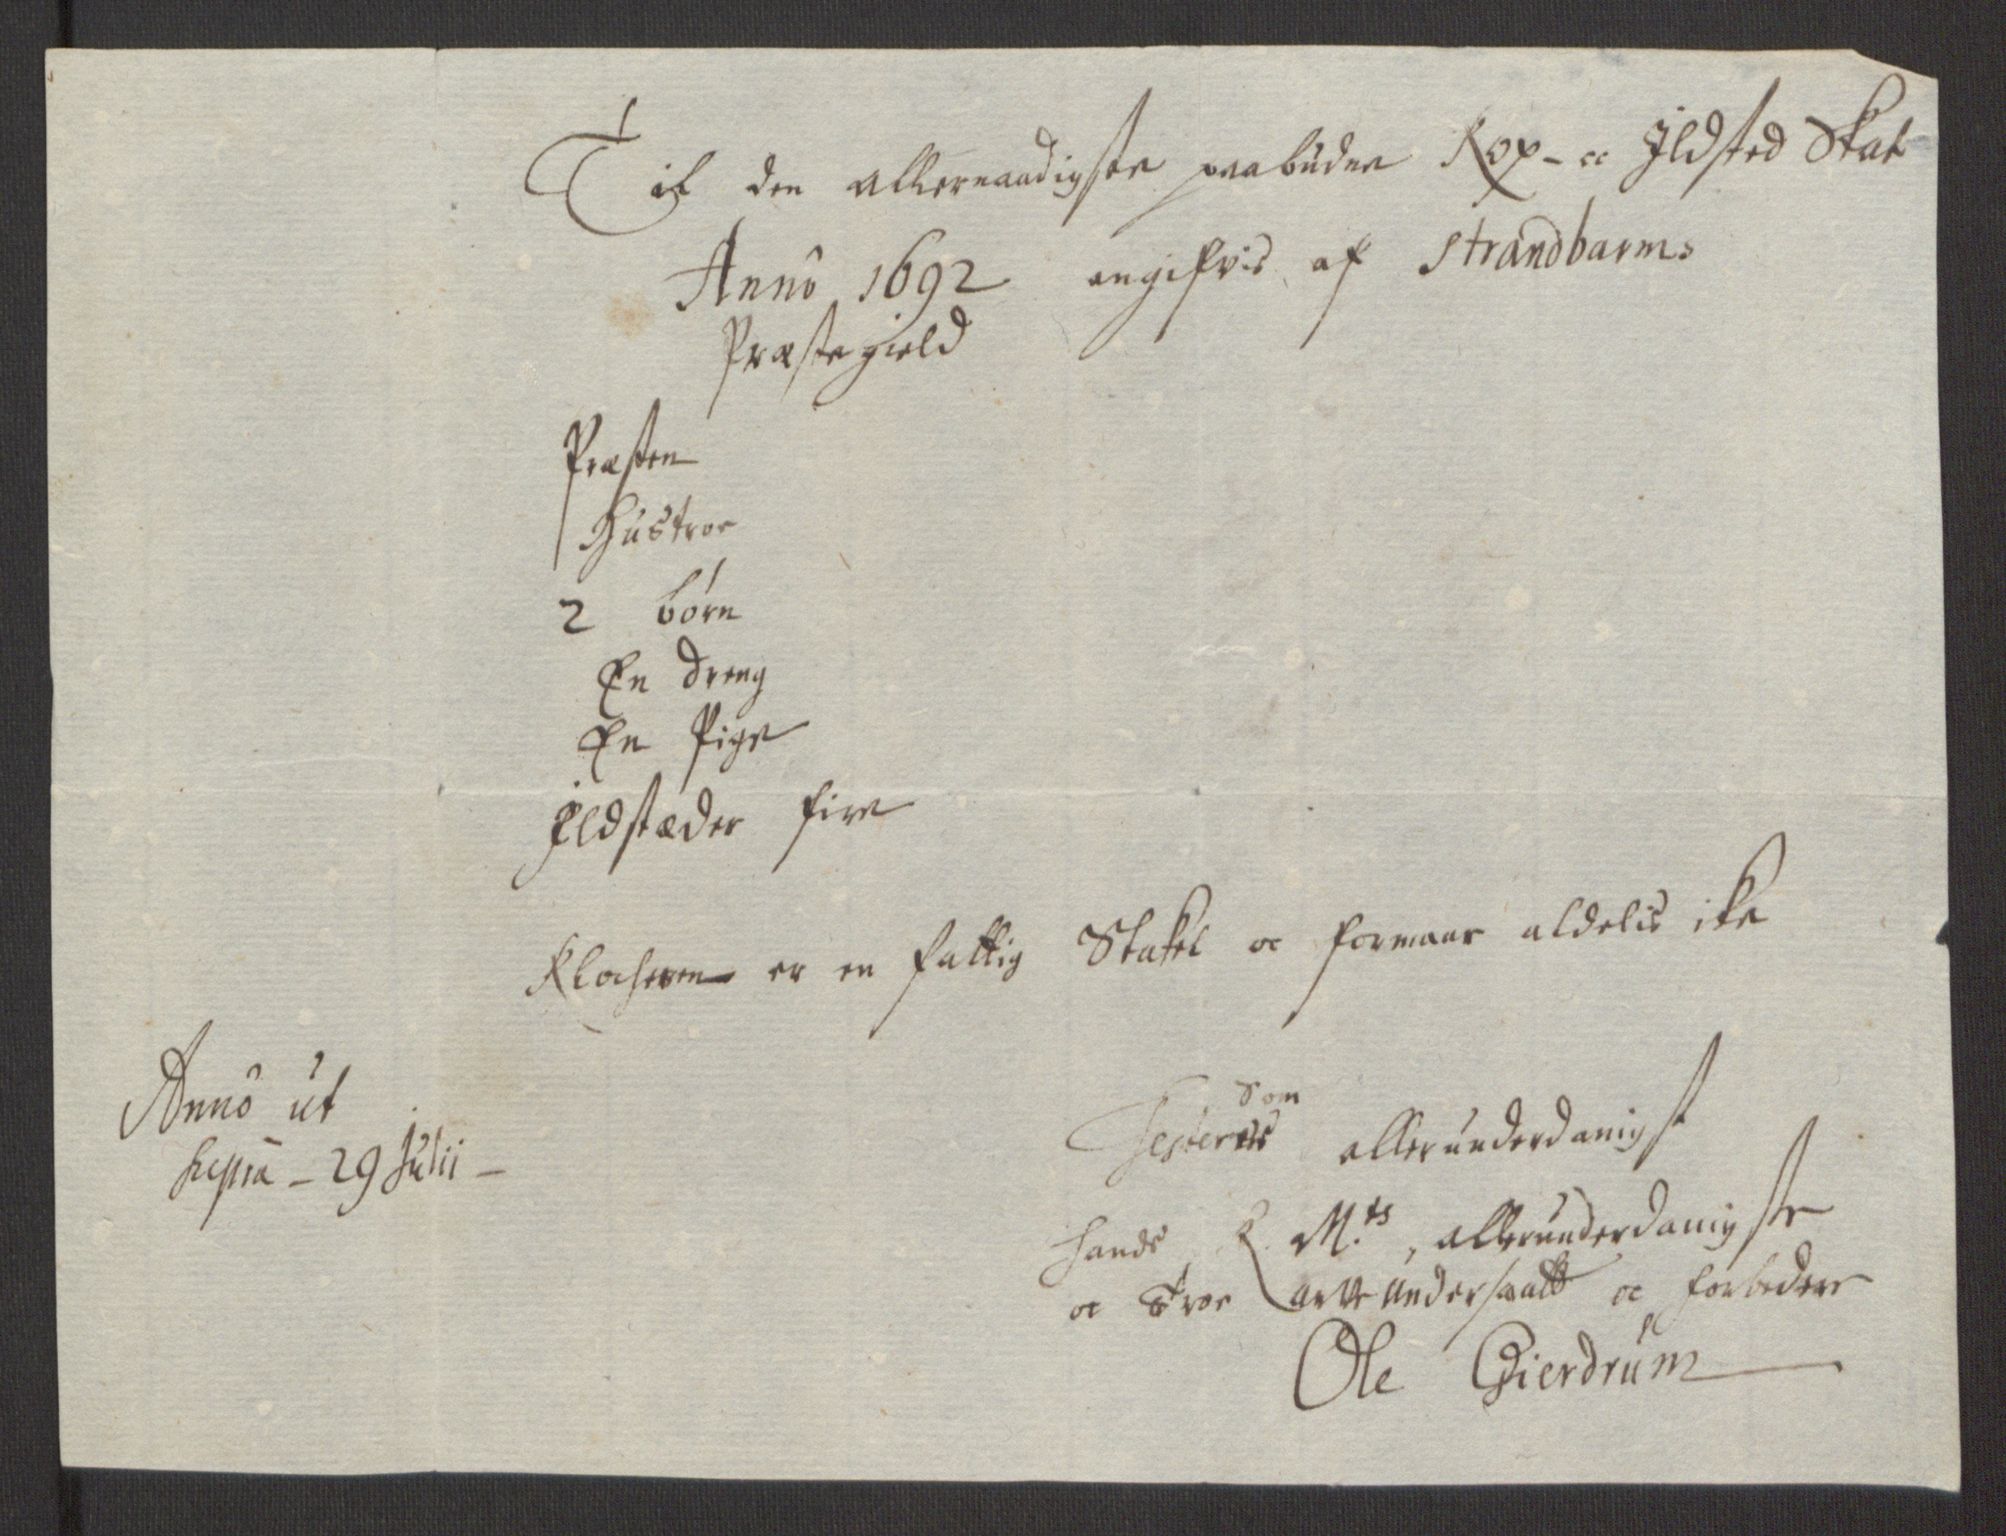 Til den allernaadigste paabudne Kop- oc Ildsted Skat
Anno 1692 angifvis af Strandbarms
Præstegield
Præsten
Hustroe
2 børn
En dreng
En Pige
Ildstæder fire
Klocheren er en fattig Stakel oc formaar aldelis ike
Anno ut
supra - 29 Julii -
Som
Testerer allerunderdanigst
Hands K. M.ts, allerunderdanigste
oc Troe arve undersaatt oc forbedere
Ole Gierdrum